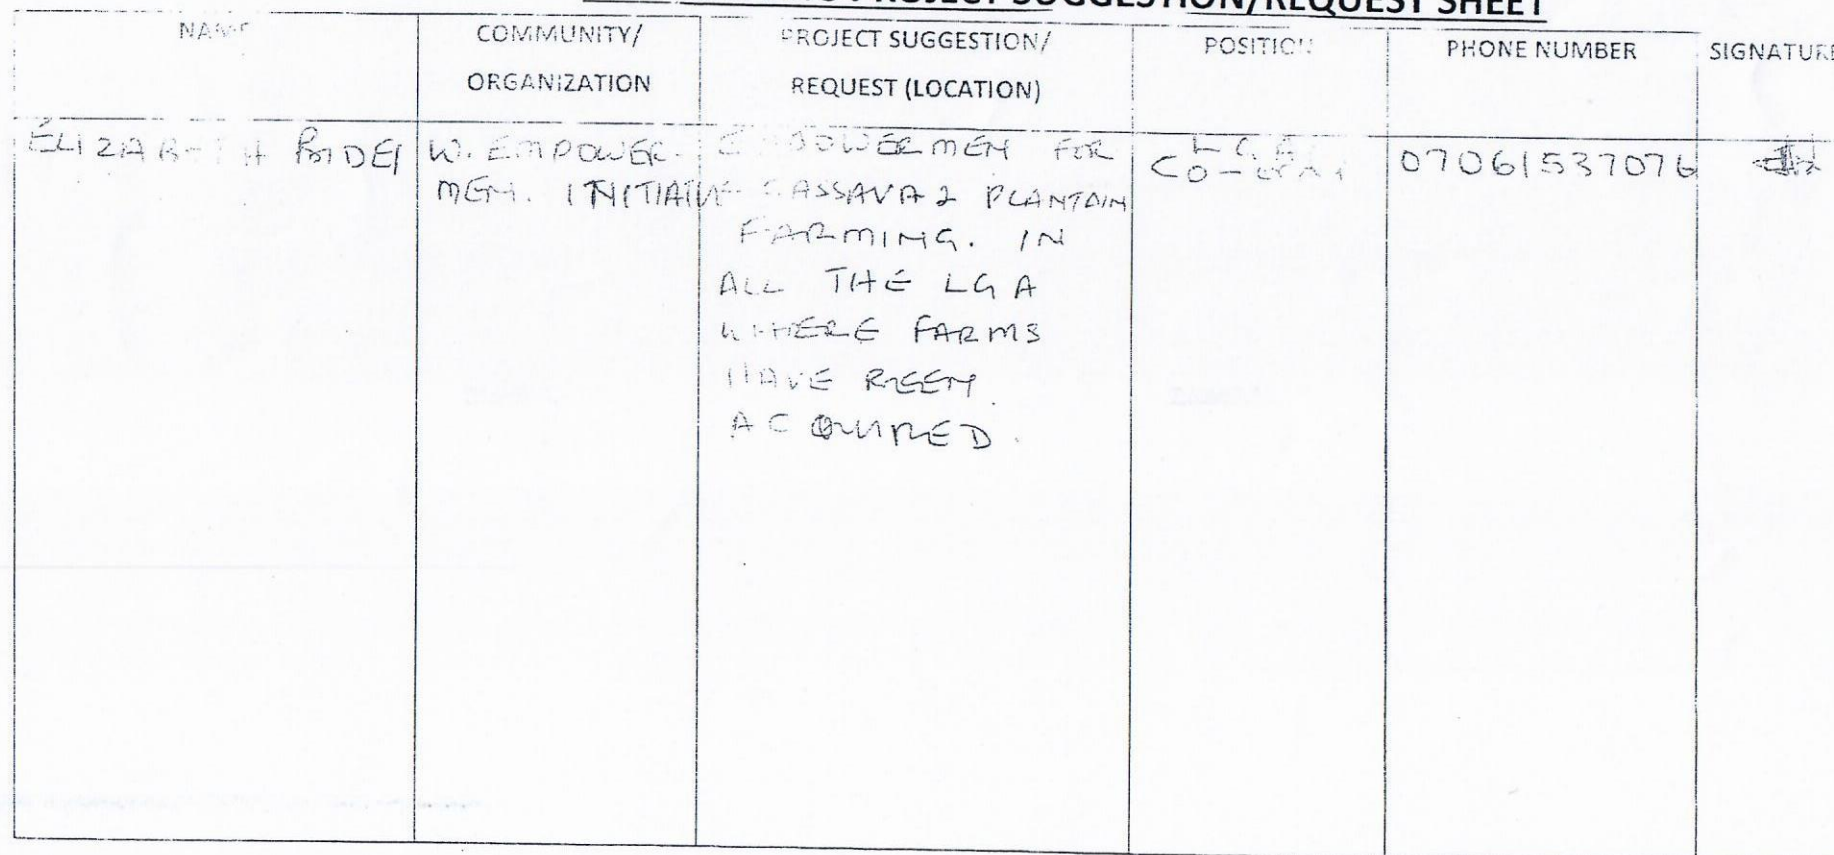 PROJECT SUGGESTION/REQUEST SHEET
NAME
COMMUNITY/
ORGANIZATION
PROJECT SUGGESTION/
REQUEST (LOCATION)
POSITION
PHONE NUMBER
SIGNATURE
ELIZABETH
W. EMPOWER-
MEN. INITIATIVE
EMPOWERMEN FOR
CASSAVA & PLANTAIN
FARMING. IN
ALL THE LGA
WHERE FARMS
HAVE BEEN
ACQUIRED.
L.G.A
07061537076